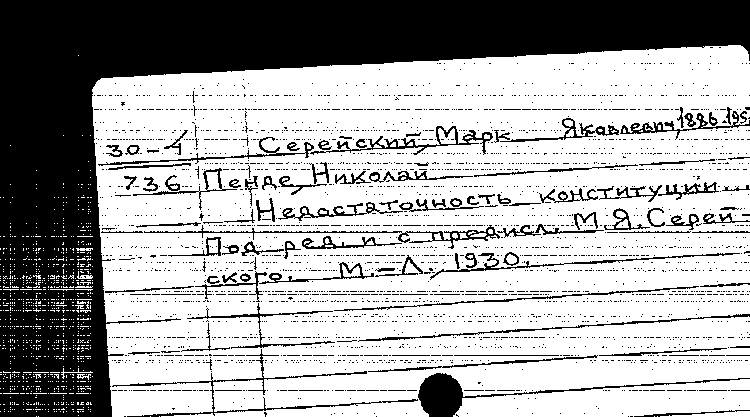 30-4 Серейский, Марк Яковлевич, 1886-195
736 Пенде, Николай
Недостаточность конституции...
Под ред. и с предисл. М.Я.Серей-
ского. М.-Л., 1930.